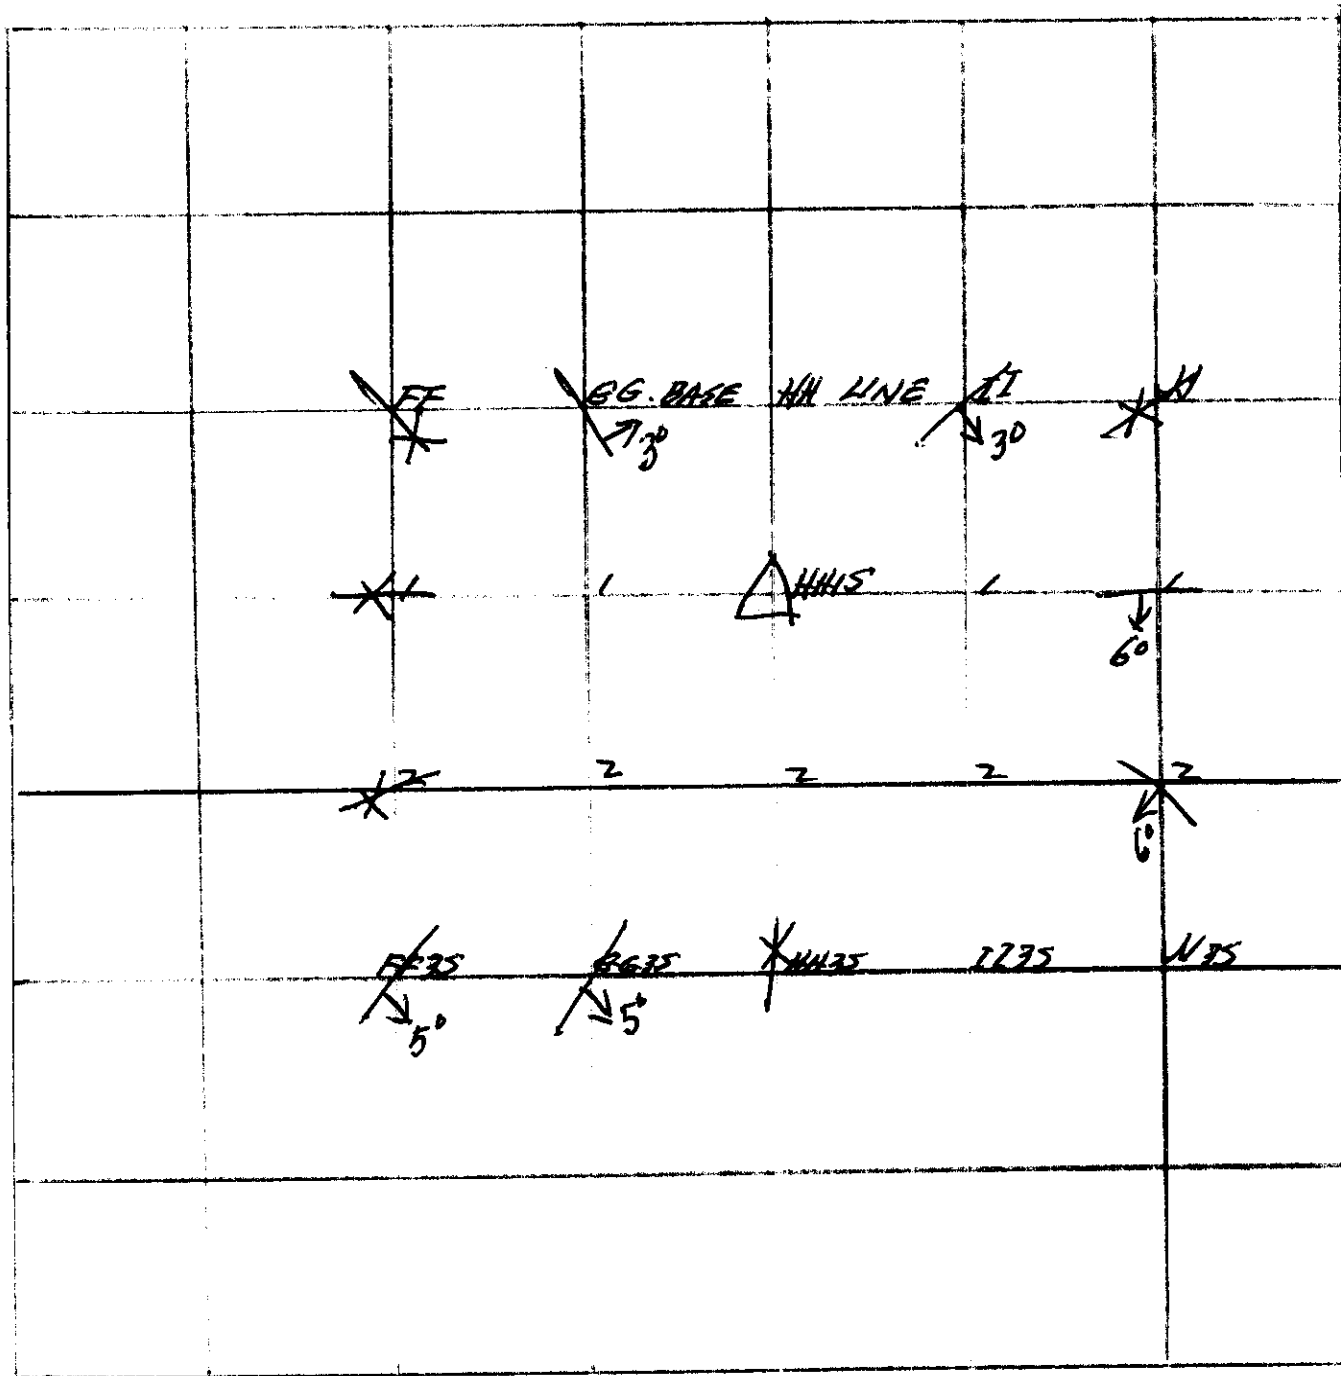 FF GG. BASE HH LINE II
3° 3°
1 1 HH1S 1 1
6°
2 2 2 2 2
6°
FF3S GG3S HH3S II3S
5° 5°